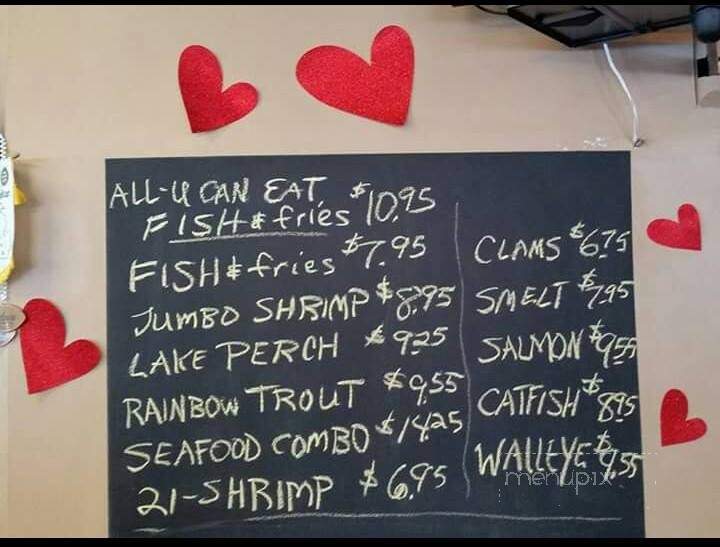 ALL-U CAN EAT
FISH & fries $10.95
FISH & fries $7.95
JUMBO SHRIMP $8.95
LAKE PERCH $9.25
RAINBOW TROUT $9.55
SEAFOOD COMBO $14.25
21-SHRIMP $6.95
CLAMS $6.75
SMELT $7.95
SALMON $9.55
CATFISH $8.95
WALLEYE $9.55
menupix